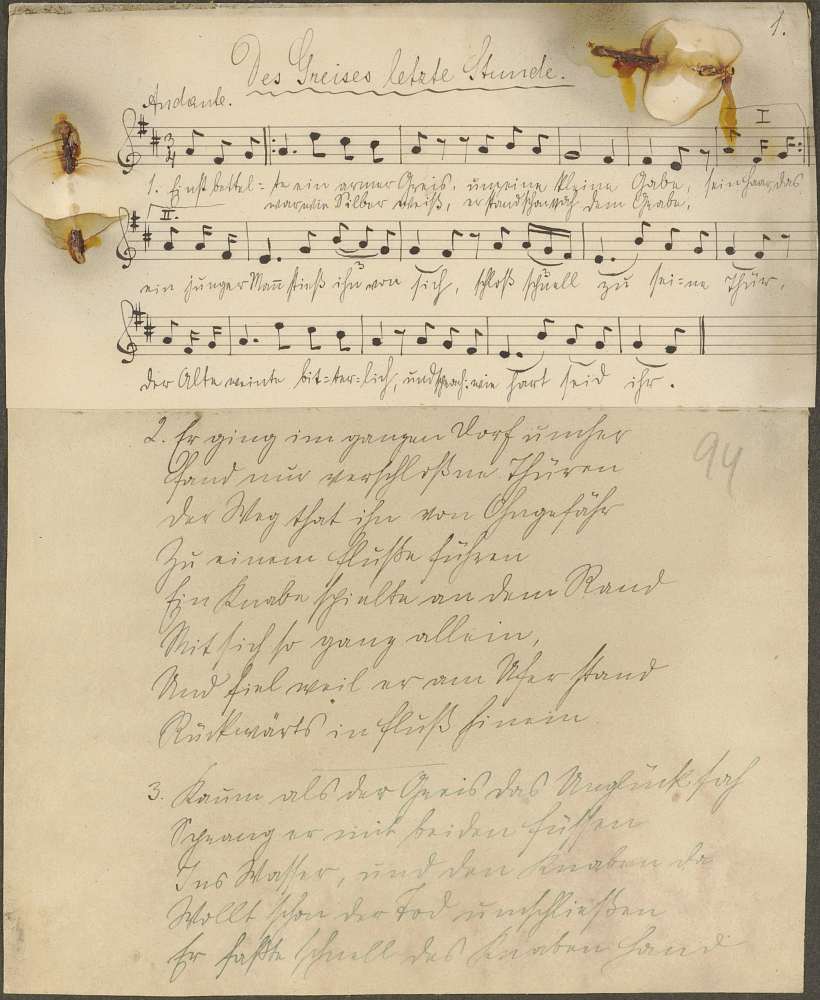 1.
Des Greises letzte Stunde.
Andante.
I
1. Einst bettel=te ein armer Greis, um eine kleine Gabe, sein Haar das
war wie Silber weiß, er stand schon nah dem Grabe,
II.
ein junger Mann stieß ihn von sich, schloß schnell zu sei=ne Thür,
3
der Alte weinte bit=ter=lich, und sprach: wie hart seid ihr.
2. Er ging im ganzen Dorf umher
Fand nur verschloßne Thüren
Der Weg that ihn von Ohngefähr
Zu einem Fluße führen
Ein Knabe spielte an dem Rand
Mit sich so ganz allein,
Und fiel weil er am Ufer stand
Rückwärts in Fluß hinein
94
3. Kaum als der Greis das Unglück sah
Sprang er mit beiden Füssen
Ins Wasser, und den Knaben da
Wollt schon der Tod umschließen
Er faßte schnell des Knaben Hand